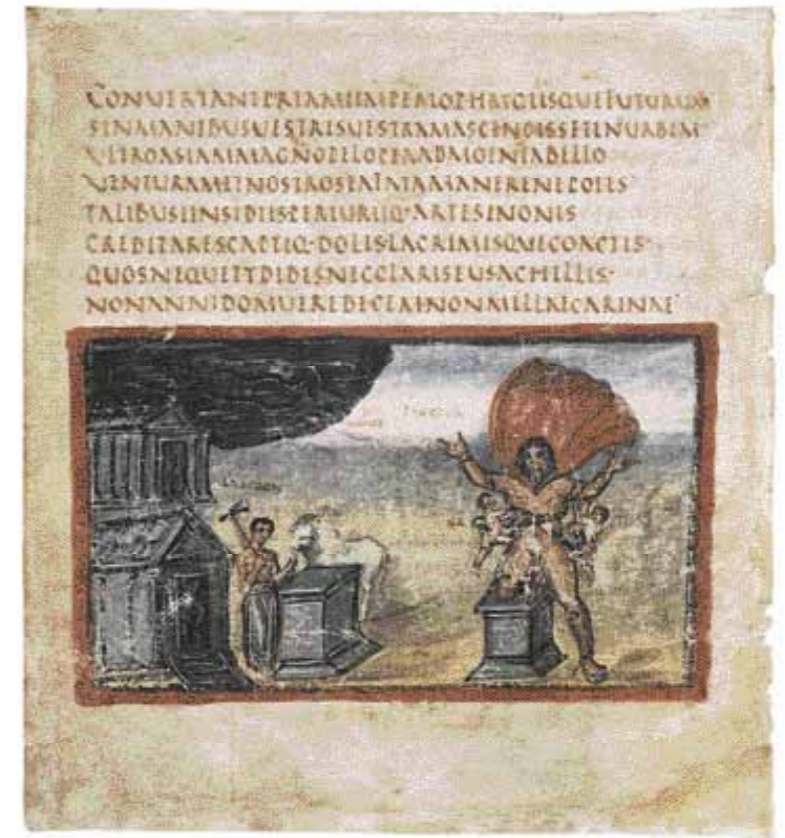 CONVERTANTPRIAMIIMPERIOPHRYGIBUSQUEFUTURUM
SINMANIBUSVESTRISVESTRAMASCENDISSETINURBEM
ULTROASIAMMAGNOPELOPEAADMOENIABELLO
VENTURAMETNOSTROSEAFATAMANERENEPOTES
TALIBUSINSIDIISPERIURIIQ·ARTESINONIS
CREDITARESCAPTIQ·DOLISLACRIMISQUECOACTIS·
QUOSNEQUETYDIDESNECCLARISEUSACHILLIS·
NONANNIDOMUEREDECEMNONMILLECARINAE
LAOCOON